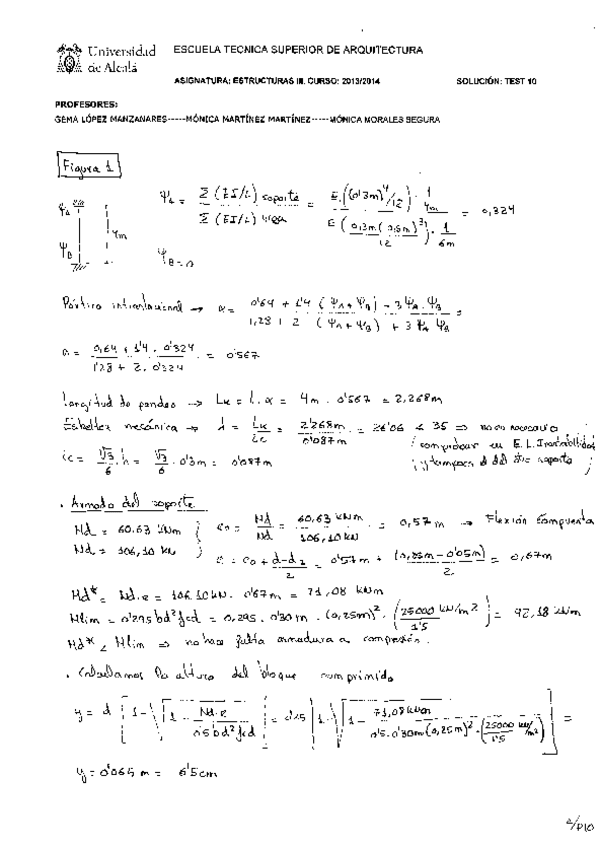 Universidad de Alcalá
ESCUELA TECNICA SUPERIOR DE ARQUITECTURA
ASIGNATURA: ESTRUCTURAS III. CURSO: 2013/2014 SOLUCIÓN: TEST 10
PROFESORES:
GEMA LÓPEZ MANZANARES-----MÓNICA MARTÍNEZ MARTÍNEZ-----MÓNICA MORALES SEGURA
Figura 1
ΨA 4m ΨB
ΨA = Σ (EI/L) soporte / Σ (EI/L) viga = E·((0'3m)^4/12)·1/4m / E (0,3m(0,5m)^3/12)·1/6m = 0,324
ΨB = 0
Pórtico intraslacional → α = 0'64 + 1'4 (ΨA + ΨB) + 3 ΨA·ΨB / 1,28 + 2 (ΨA + ΨB) + 3 ΨA ΨB =
α = 0,64 + 1'4 · 0'324 / 1'28 + 2 · 0'324 = 0'567
Longitud de pandeo → Lk = L·α = 4m · 0'567 = 2,268m
Esbeltez mecánica → λ = Lk/ic = 2'268m / 0'087m = 26'06 < 35 ⇒ no es necesario
comprobar en E.L. Inestabilidad
ic = √3/6 · h = √3/6 · 0'3m = 0'087m
y tampoco el del soporte
· Armado del soporte
Md = 60,63 kNm
Nd = 106,10 kN
e0 = Md/Nd = 60,63 kNm / 106,10 kN = 0,57m → Flexión compuesta
e = e0 + d-d2 / 2 = 0'57m + (0,25m - 0'05m) / 2 = 0,67m
Md* = Nd·e = 106,10kN · 0'67m = 71,08 kNm
Mlim = 0'295 bd² fcd = 0,295 · 0'30m · (0,25m)² · (25000 kN/m² / 1'5) = 92,18 kNm
Md* < Mlim ⇒ no hace falta armadura a compresión.
· Calculamos la altura del bloque comprimido
y = d [1 - √(1 - Nd·e / 0'5 bd² fcd)] = 0'25 [1 - √(1 - 71,08kNm / 0'5·0'30m (0,25m)²·(25000 kN/m² / 1'5))] =
y = 0'065 m = 6'5cm